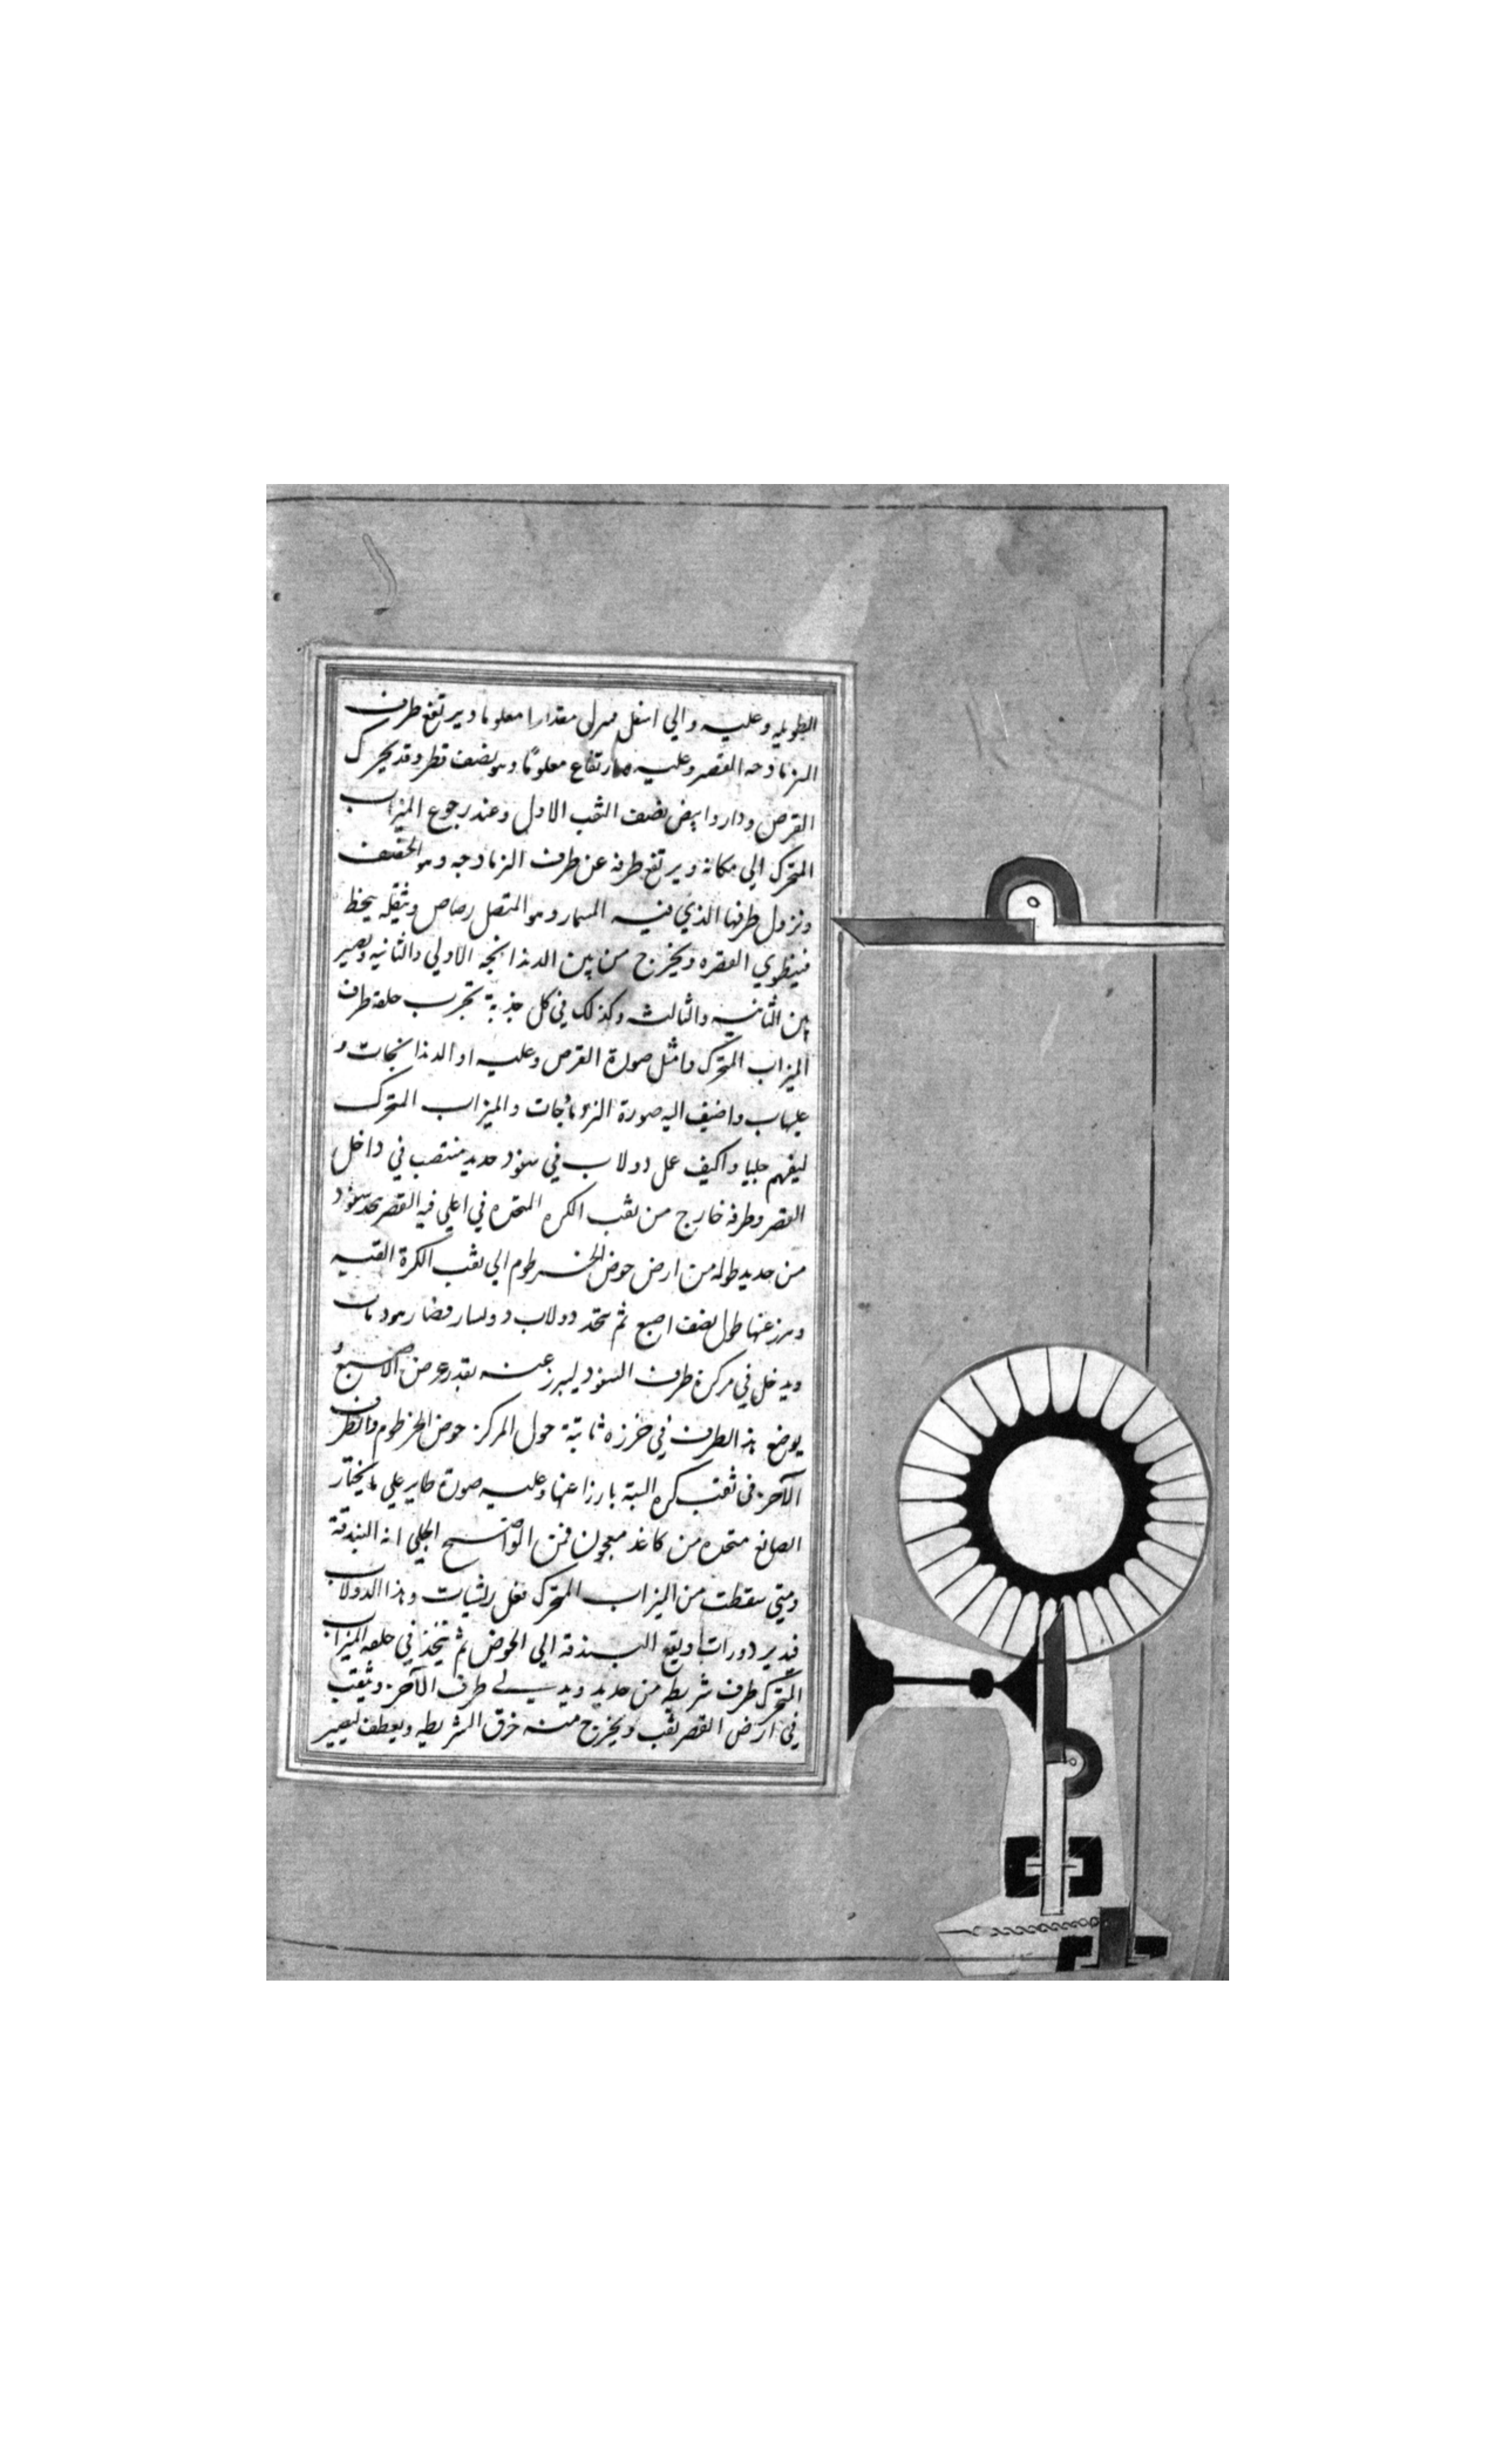 الطويله وعليه والي اسفل معدارا معلوما ويرتفع طرف
القصر وعليه ارتفاع معلومًا وهو نصف قطر وقد يحرك
القرص ودار وابيض نصف الثقب الاول وعند رجوع الميزاب
المتحرك الي مكانه ويرتفع طرفه عن طرف وهو الخفيف
ونزول طرفها الذي فيه المسمار وهو المتصل رصاص وثقله
ويخرج من بين الاولي والثانيه ويصير
بين الثانيه والثالثه وكذلك في كل جذبة حلقه طرف
الميزاب المتحرك وامثل صورة القرص وعليه او الدندانجات و
عليها ب واضيف اليه صورة والميزاب المتحرك
ليفهم جليا واكيف عمل دولاب في سفود حديد منتصب في داخل
القصر وطرفه خارج من ثقب الكره المتخده في اعلي القصر سفود
من حديد طوله من ارض حوض الخرطوم الي ثقب الكرة القبيه
طول نصف اصبع ثم يتخد دولاب
ويدخل في مركزه طرف السفود ليبرز عنه بقدر عرض الاصبع و
يوضع هذ الطرف في خرزه ثابتة حول المركز حوض الخرطوم والطرف
الآخر في ثقب كره البتة بارزا عنها وعليه صورة طاير علي ما يختار
الصانع متخده من كاغذ معجون فمن الواضح الجلي انه البندقة
ومتي سقطت من الميزاب المتحرك وهذا الدولاب
فيدير دورات ويقع البندقة الي الحوض ثم يتخذ في حلقه الميزاب
المتحرك طرف شريطه من حديد طرف الآخر ويثقب
في ارض القصر ثقب ويخرج منه خرق الشريطه ويعطف ليصير